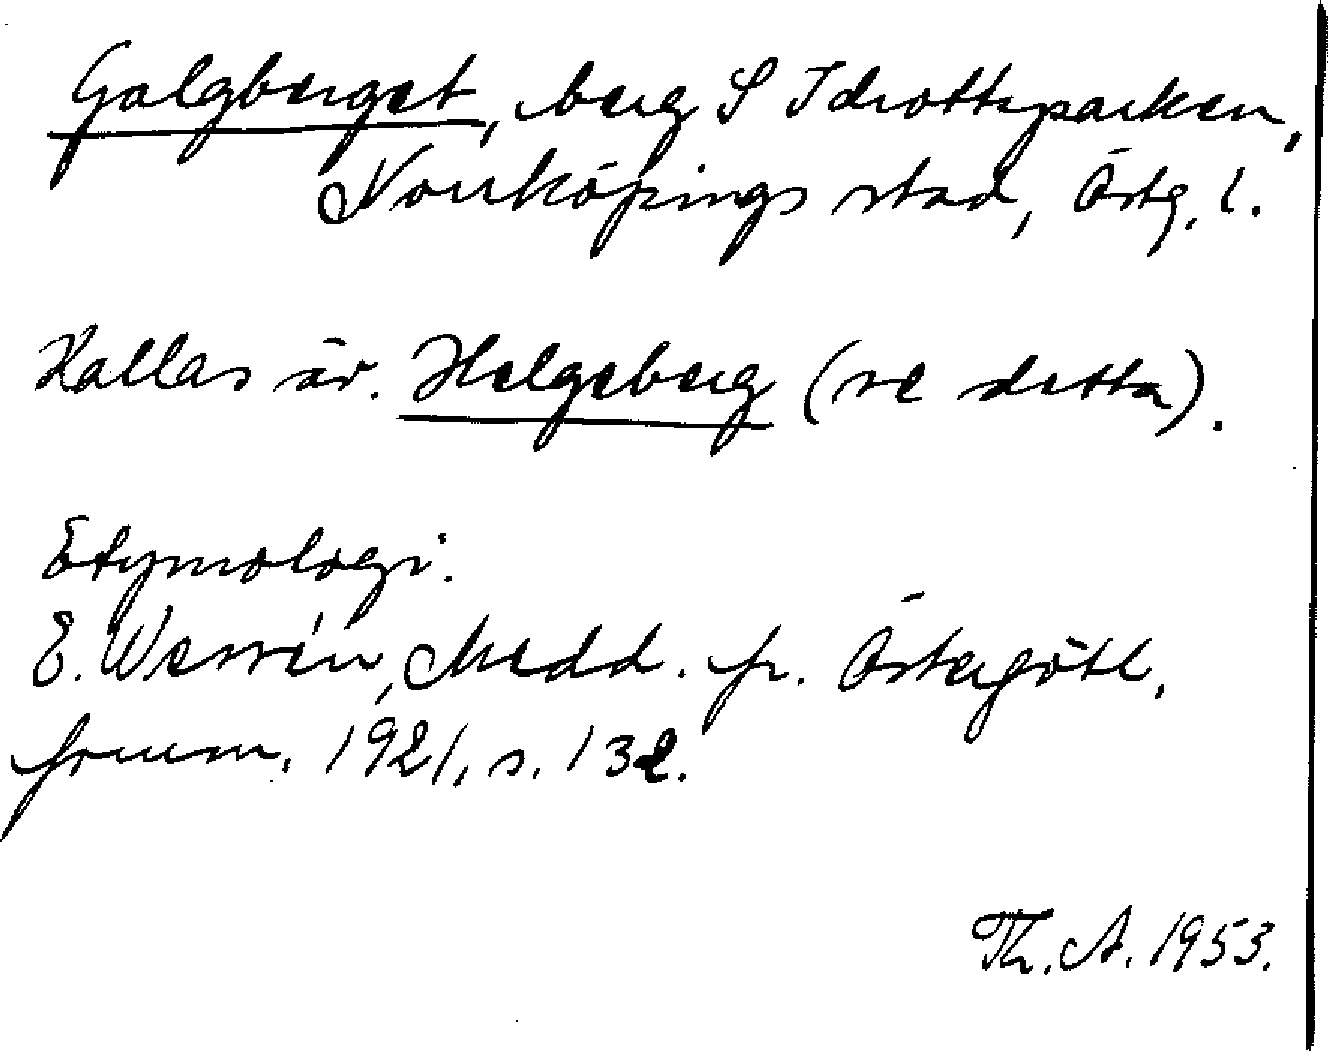 Galgberget, berg S Idrottsparken,
Norrköpings stad, Östg. l.
Kallas äv. Helgeberg (se detta).
Etymologi.
E. Wessén, Medd. fr. Östergötl.
fornm. 1921, s. 132.
Th. A. 1953.